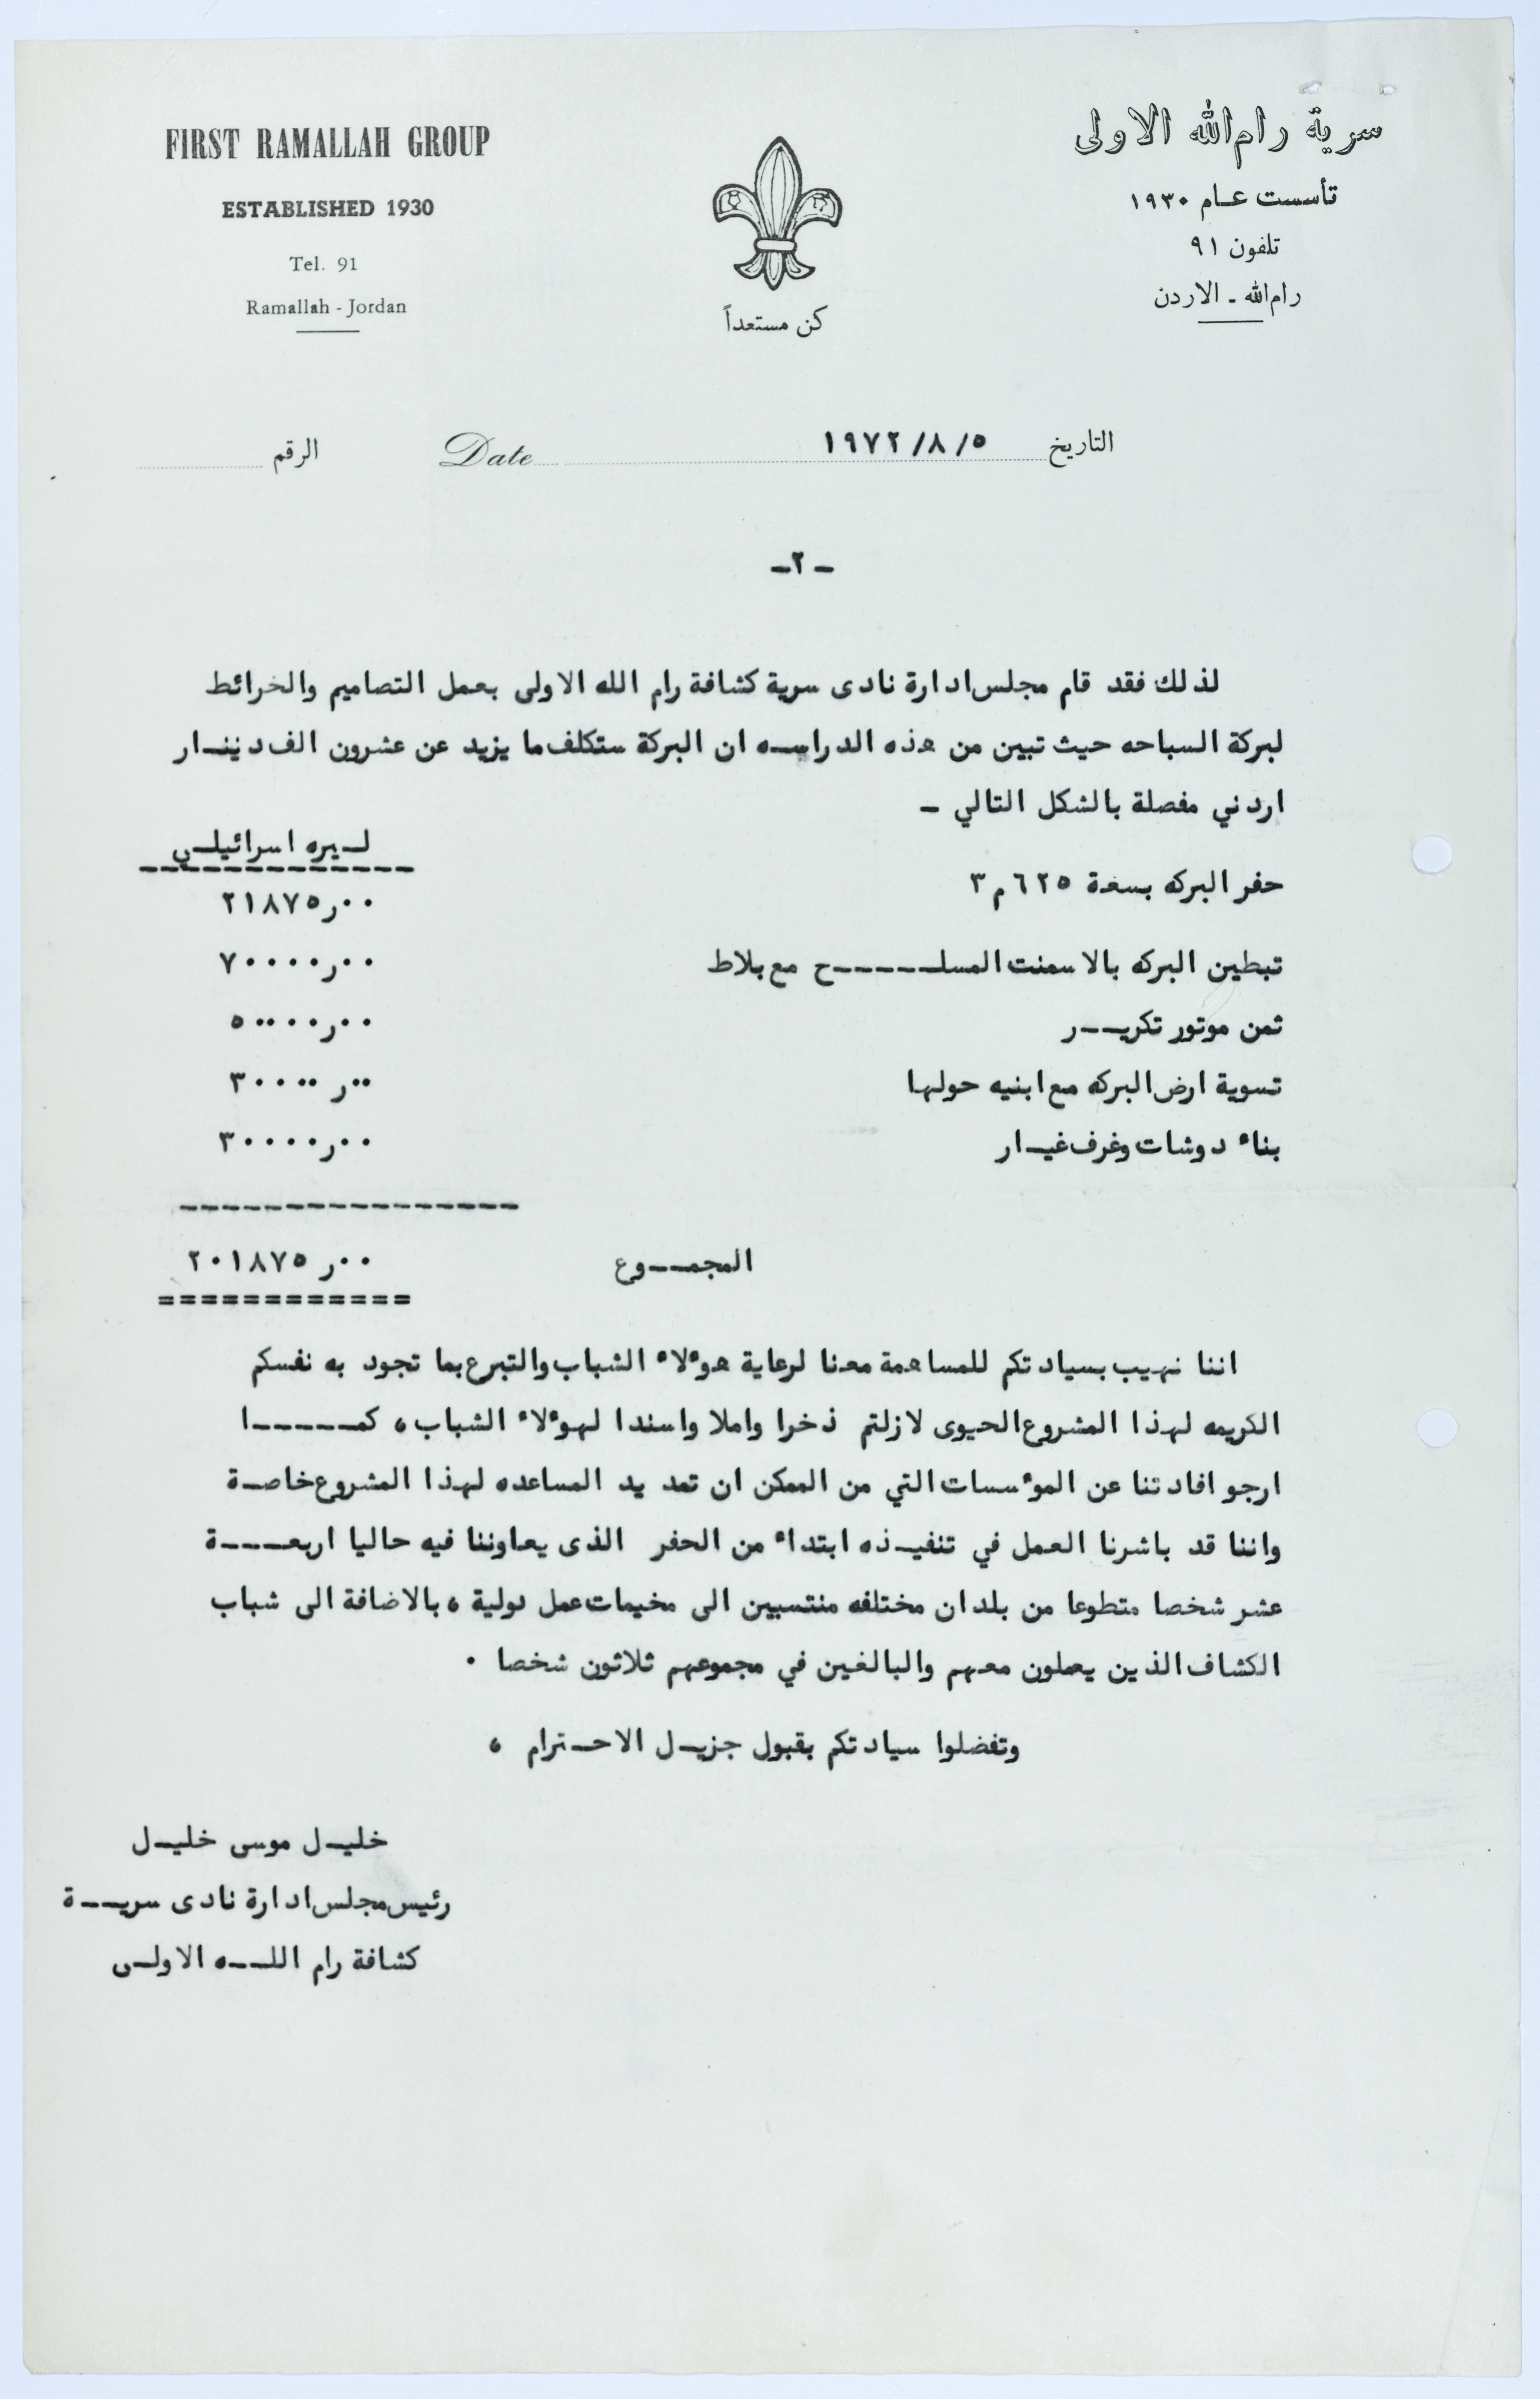 FIRST RAMALLAH GROUP
ESTABLISHED 1930
Tel. 91
Ramallah - Jordan
كن مستعداً
سرية رام الله الاولى
تأسست عام ١٩٣٠
تلفون ٩١
رام الله - الاردن
التاريخ ٥/٨/١٩٧٢ Date الرقم
-٢-
لذلك فقد قام مجلس ادارة نادى سرية كشافة رام الله الاولى بعمل التصاميم والخرائط
لبركة السباحه حيث تبين من هذه الدراسه ان البركة ستكلف ما يزيد عن عشرون الف دينار
اردني مفصلة بالشكل التالي -
ليره اسرائيلي
حفر البركه بسعة ٦٢٥ م٣ ٢١٨٧٥ر٠٠
تبطين البركه بالاسمنت المسلح مع بلاط ٧٠٠٠٠ر٠٠
ثمن موتور تكرير ٥٠٠٠٠ر٠٠
تسوية ارض البركه مع ابنيه حولها ٣٠٠٠٠ر٠٠
بناء دوشات وغرف غيار ٣٠٠٠٠ر٠٠
المجموع ٢٠١٨٧٥ر٠٠
اننا نهيب بسيادتكم للمساهمة معنا لرعاية هوءلاء الشباب والتبرع بما تجود به نفسكم
الكريمه لهذا المشروع الحيوى لازلتم ذخرا واملا واسندا لهوءلاء الشباب ، كما
ارجو افادتنا عن الموءسسات التي من الممكن ان تمد يد المساعده لهذا المشروع خاصة
واننا قد باشرنا العمل في تنفيذه ابتداء من الحفر الذى يعاوننا فيه حاليا اربعة
عشر شخصا متطوعا من بلدان مختلفه منتسبين الى مخيمات عمل دولية ، بالاضافة الى شباب
الكشاف الذين يعملون معهم والبالغين في مجموعهم ثلاثون شخصا .
وتفضلوا سيادتكم بقبول جزيل الاحترام ،
خليل موسى خليل
رئيس مجلس ادارة نادى سرية
كشافة رام الله الاولى